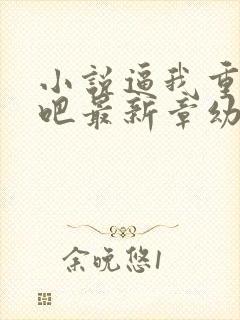 小说逼我重
吧最新章幼
余晚悠1